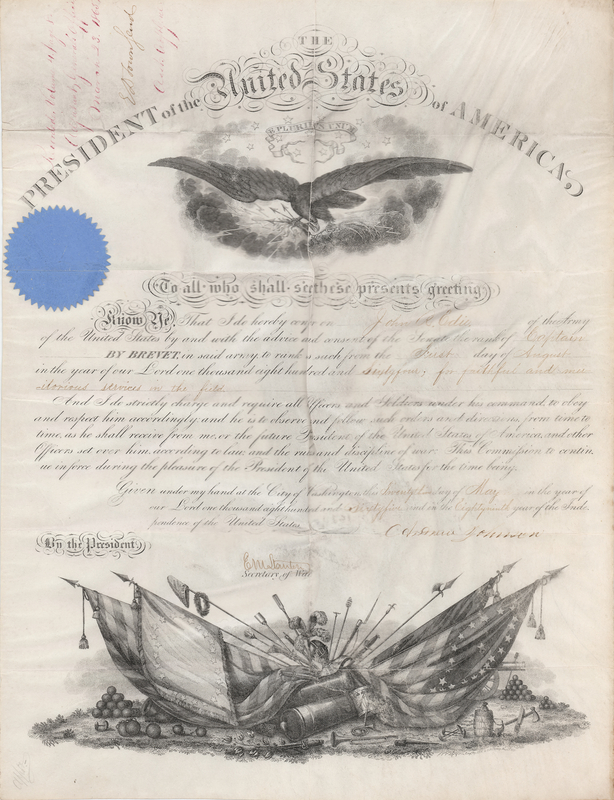 THE
United States
PRESIDENT of the of AMERICA,
E PLURIBUS UNUM
To all who shall see these presents greeting
Know Ye, That I do hereby confer on John of the Army
of the United States by and with the advice and consent of the Senate the rank of Captain
BY BREVET, in said army, to rank as such from the First day of August
in the year of our Lord one thousand eight hundred and Sixtyfour, for faithful and mer
itorious service in the field
And I do strictly charge and require all Officers and Soldiers under his command, to obey
and respect him accordingly: and he is to observe and follow such orders and directions, from time to
time, as he shall receive from me, or the future President of the United States of America, and other
Officers set over him, according to law, and the rules and discipline of war. This Commission to contin
ue in force during the pleasure of the President of the United States, for the time being.
Given under my hand at the City of Washington this day of May in the year of
our Lord one thousand eight hundred and Sixtyfive and in the Eightyninth year of the Inde
pendence of the United States
Andrew Johnson
By the President,
Secretary of War